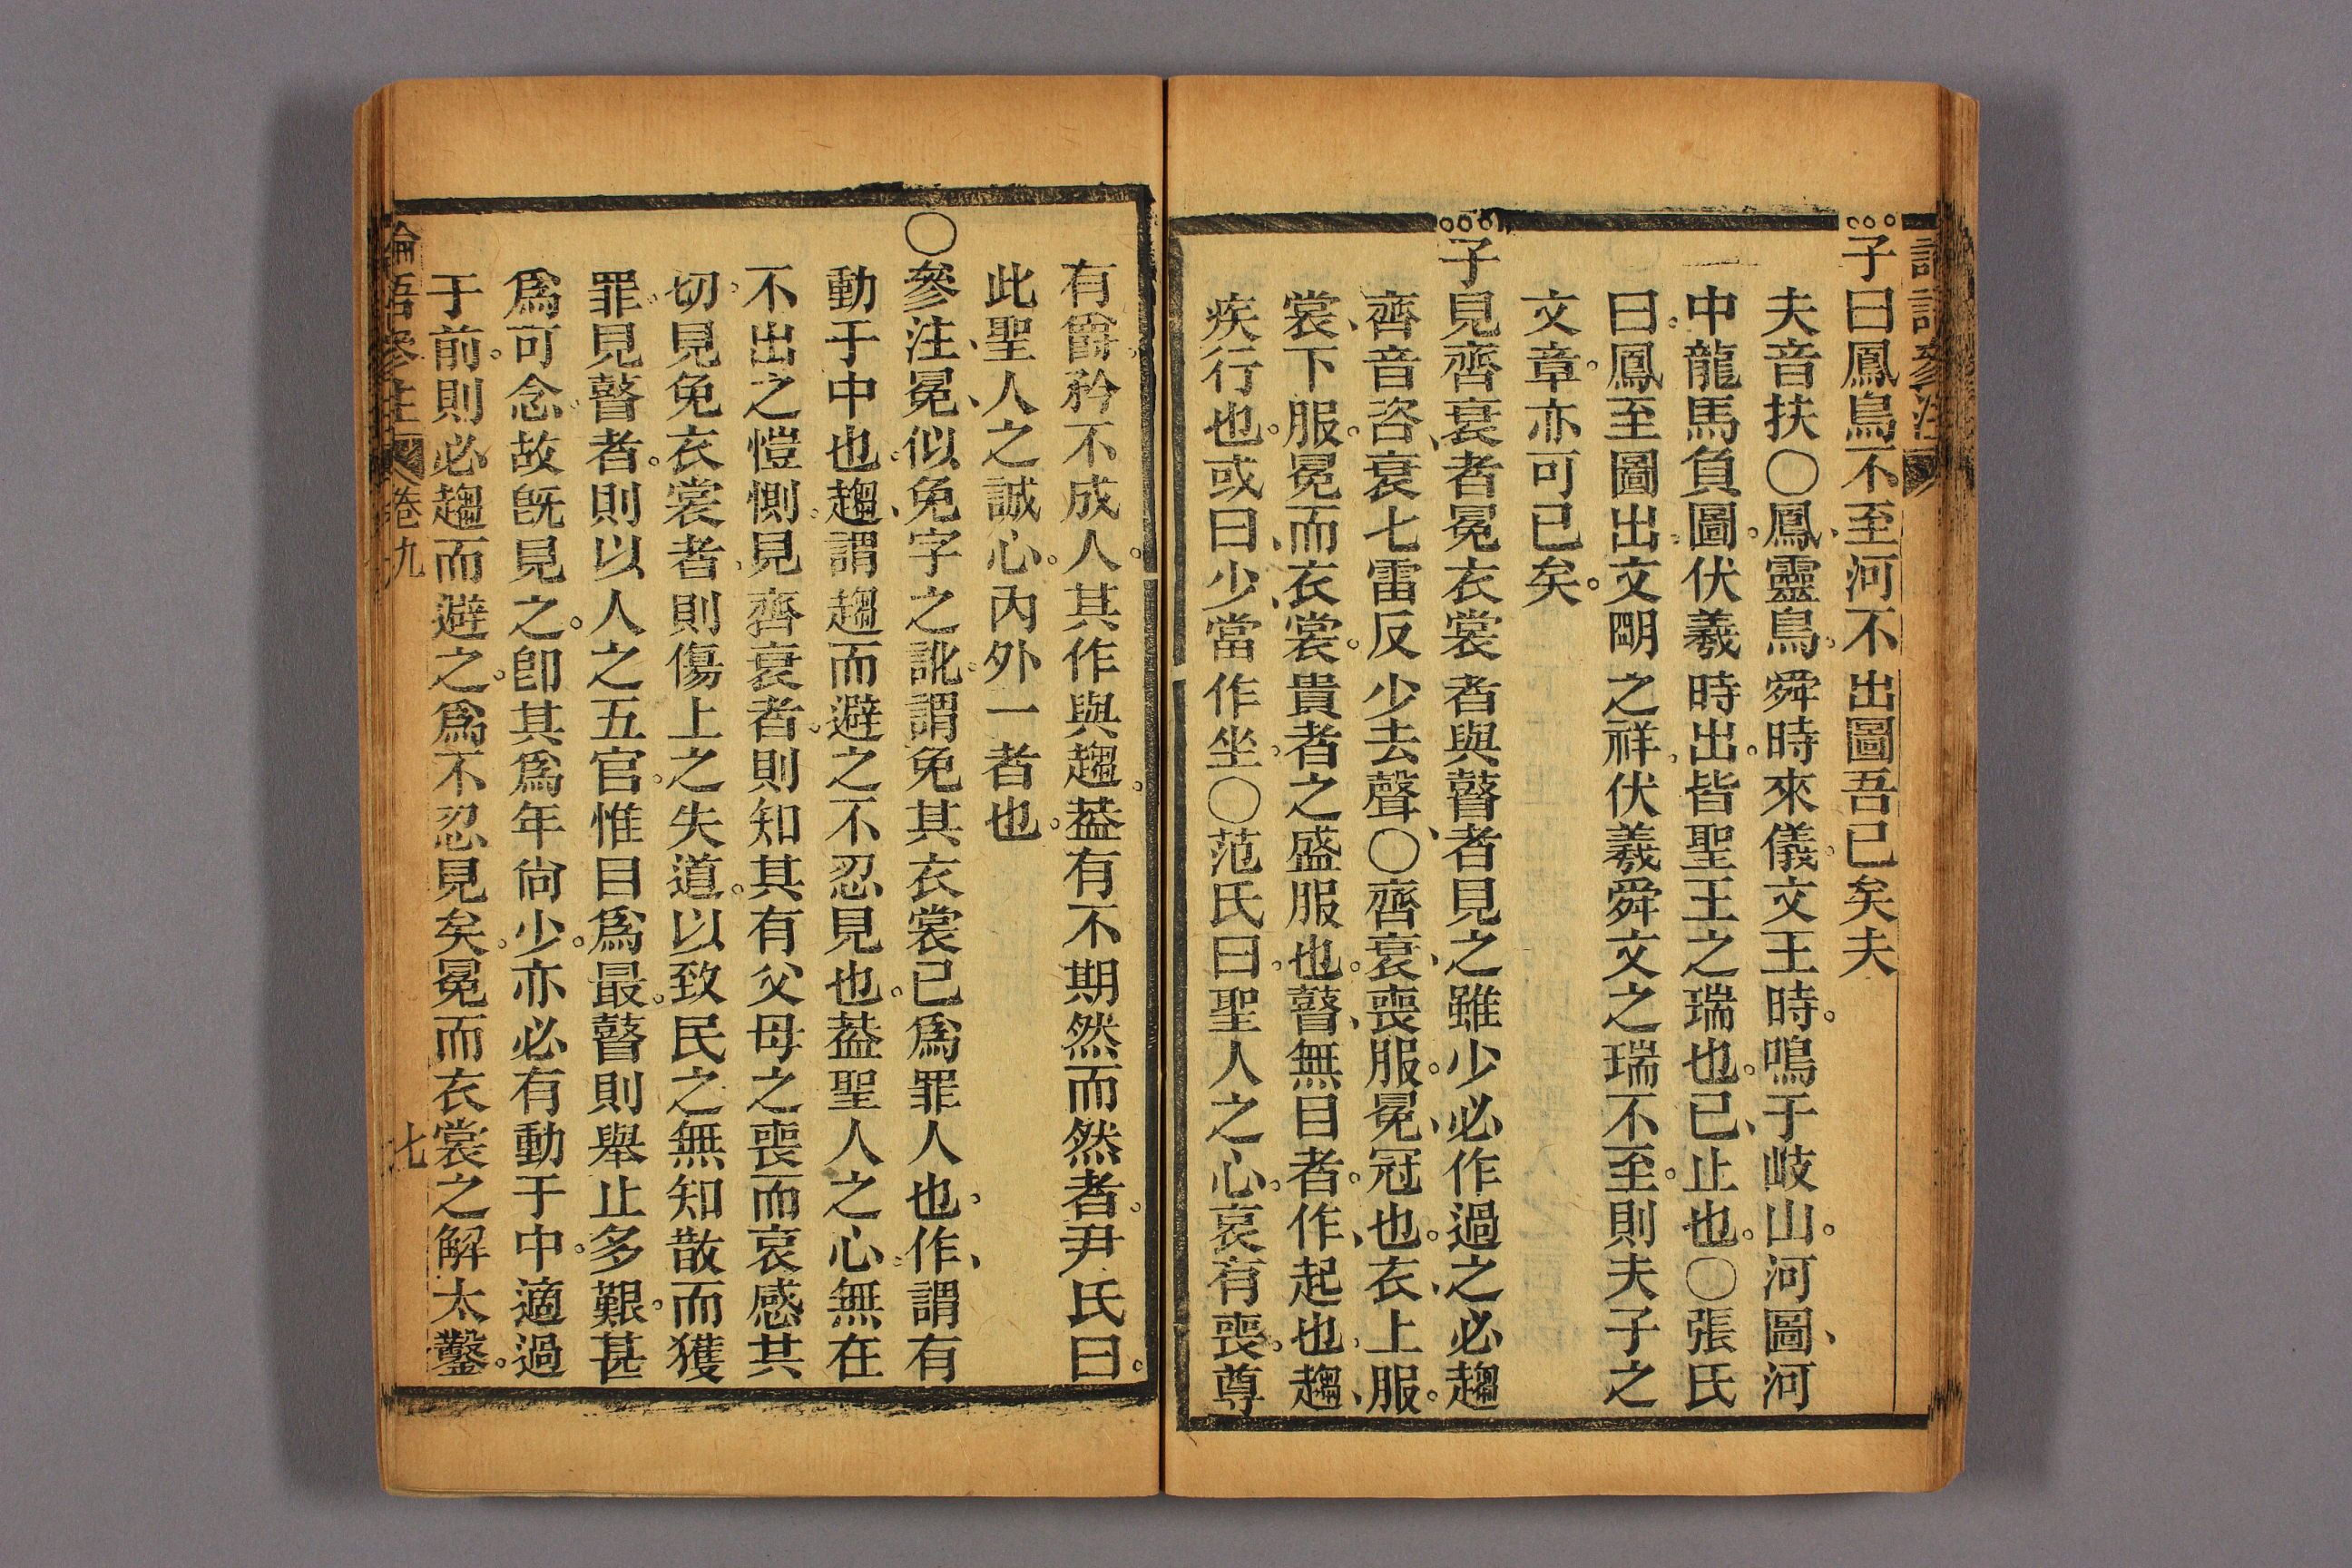 子曰鳳鳥不至河不出圖吾已矣夫
夫音扶○鳳靈鳥舜時來儀文王時鳴于岐山河圖河
中龍馬負圖伏羲時出皆聖王之瑞也已止也○張氏
曰鳳至圖出文明之祥伏羲舜文之瑞不至則夫子之
文章亦可已矣
子見齊衰者冕衣裳者與瞽者見之雖少必作過之必趨
齊音咨衰七雷反少去聲○齊衰喪服冕冠也衣上服
裳下服冕而衣裳貴者之盛服也瞽無目者作起也趨
疾行也或曰少當作坐○范氏曰聖人之心哀有喪尊
有爵矜不成人其作與趨葢有不期然而然者尹氏曰
此聖人之誠心內外一者也
○參注冕似免字之訛謂免其衣裳已爲罪人也作謂有
動于中也趨謂趨而避之不忍見也葢聖人之心無在
不出之愷惻見齊衰者則知其有父母之喪而哀感其
切見免衣裳者則傷上之失道以致民之無知散而獲
罪見瞽者則以人之五官惟目爲最瞽則舉止多艱甚
爲可念故旣見之卽其爲年尙少亦必有動于中適過
于前則必趨而避之爲不忍見矣冕而衣裳之解太鑿
論語參注 卷九 七